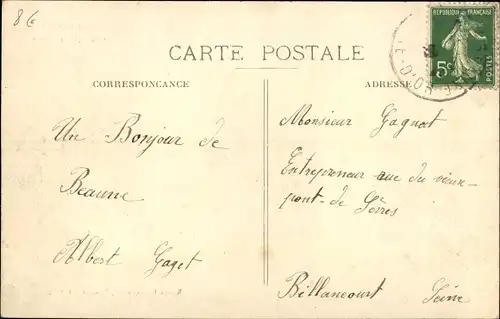 8 €
RÉPUBLIQUE FRANÇAISE
5c
POSTES
CARTE POSTALE
CORRESPONCANCE
ADRESSE
Un Bonjour de
Beaune
Albert Gaget
Monsieur Gagnat
Entrepreneur rue du vieux-
pont-de Sèvres
Billancourt Seine